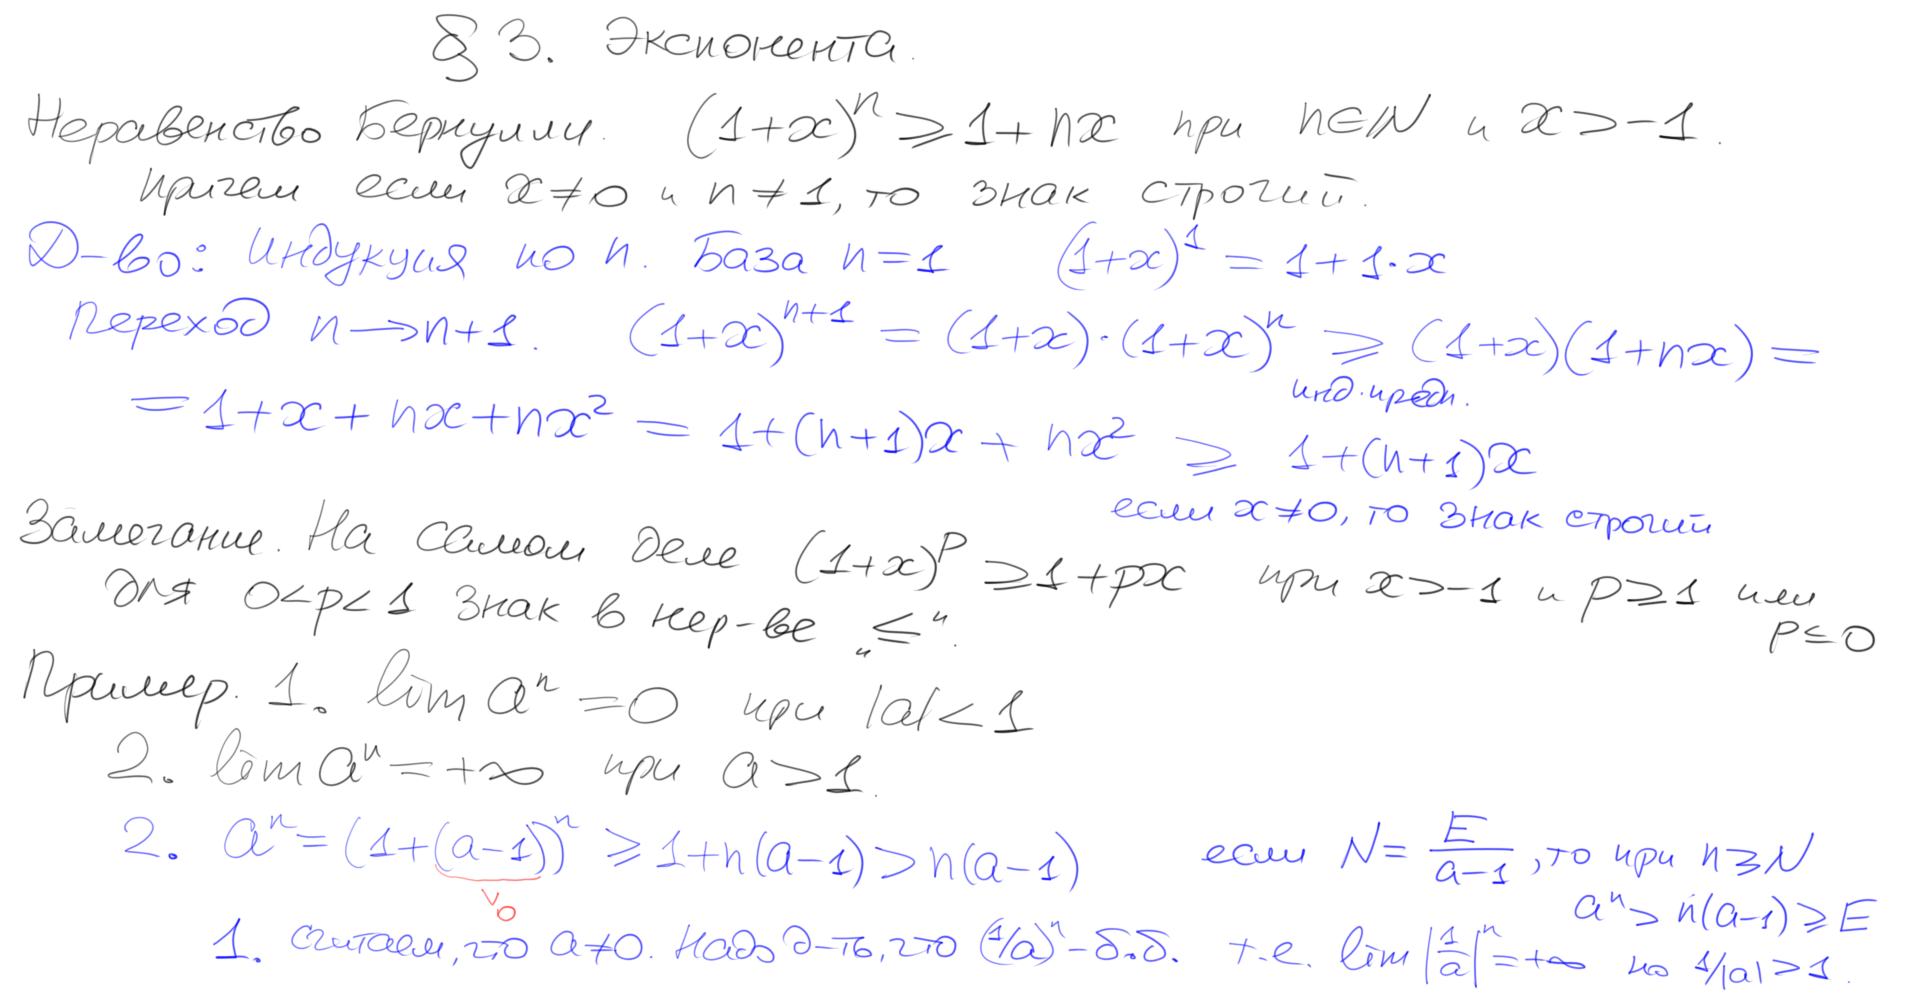 § 3. Экспонента.
Неравенство Бернулли. (1+x)^n ⩾ 1+nx при n∈ℕ и x>-1.
Причем если x≠0 и n≠1, то знак строгий.
Д-во: Индукция по n. База n=1 (1+x)^1 = 1+1·x
Переход n→n+1. (1+x)^{n+1} = (1+x)·(1+x)^n ⩾ (1+x)(1+nx) =
инд. предп.
= 1+x+nx+nx² = 1+(n+1)x + nx² ⩾ 1+(n+1)x
если x≠0, то знак строгий
Замечание. На самом деле (1+x)^p ⩾ 1+px при x>-1 и p⩾1 или
p⩽0
для 0<p<1 знак в нер-ве „⩽“.
Пример. 1. lim a^n = 0 при |a|<1
2. lim a^n = +∞ при a>1.
2. a^n = (1+(a-1))^n ⩾ 1+n(a-1) > n(a-1) если N = E/(a-1), то при n⩾N
∨
0
a^n > n(a-1) ⩾ E
1. Считаем, что a≠0. Надо д-ть, что (1/a)^n – б.б. т.е. lim |1/a|^n = +∞ но 1/|a| > 1.